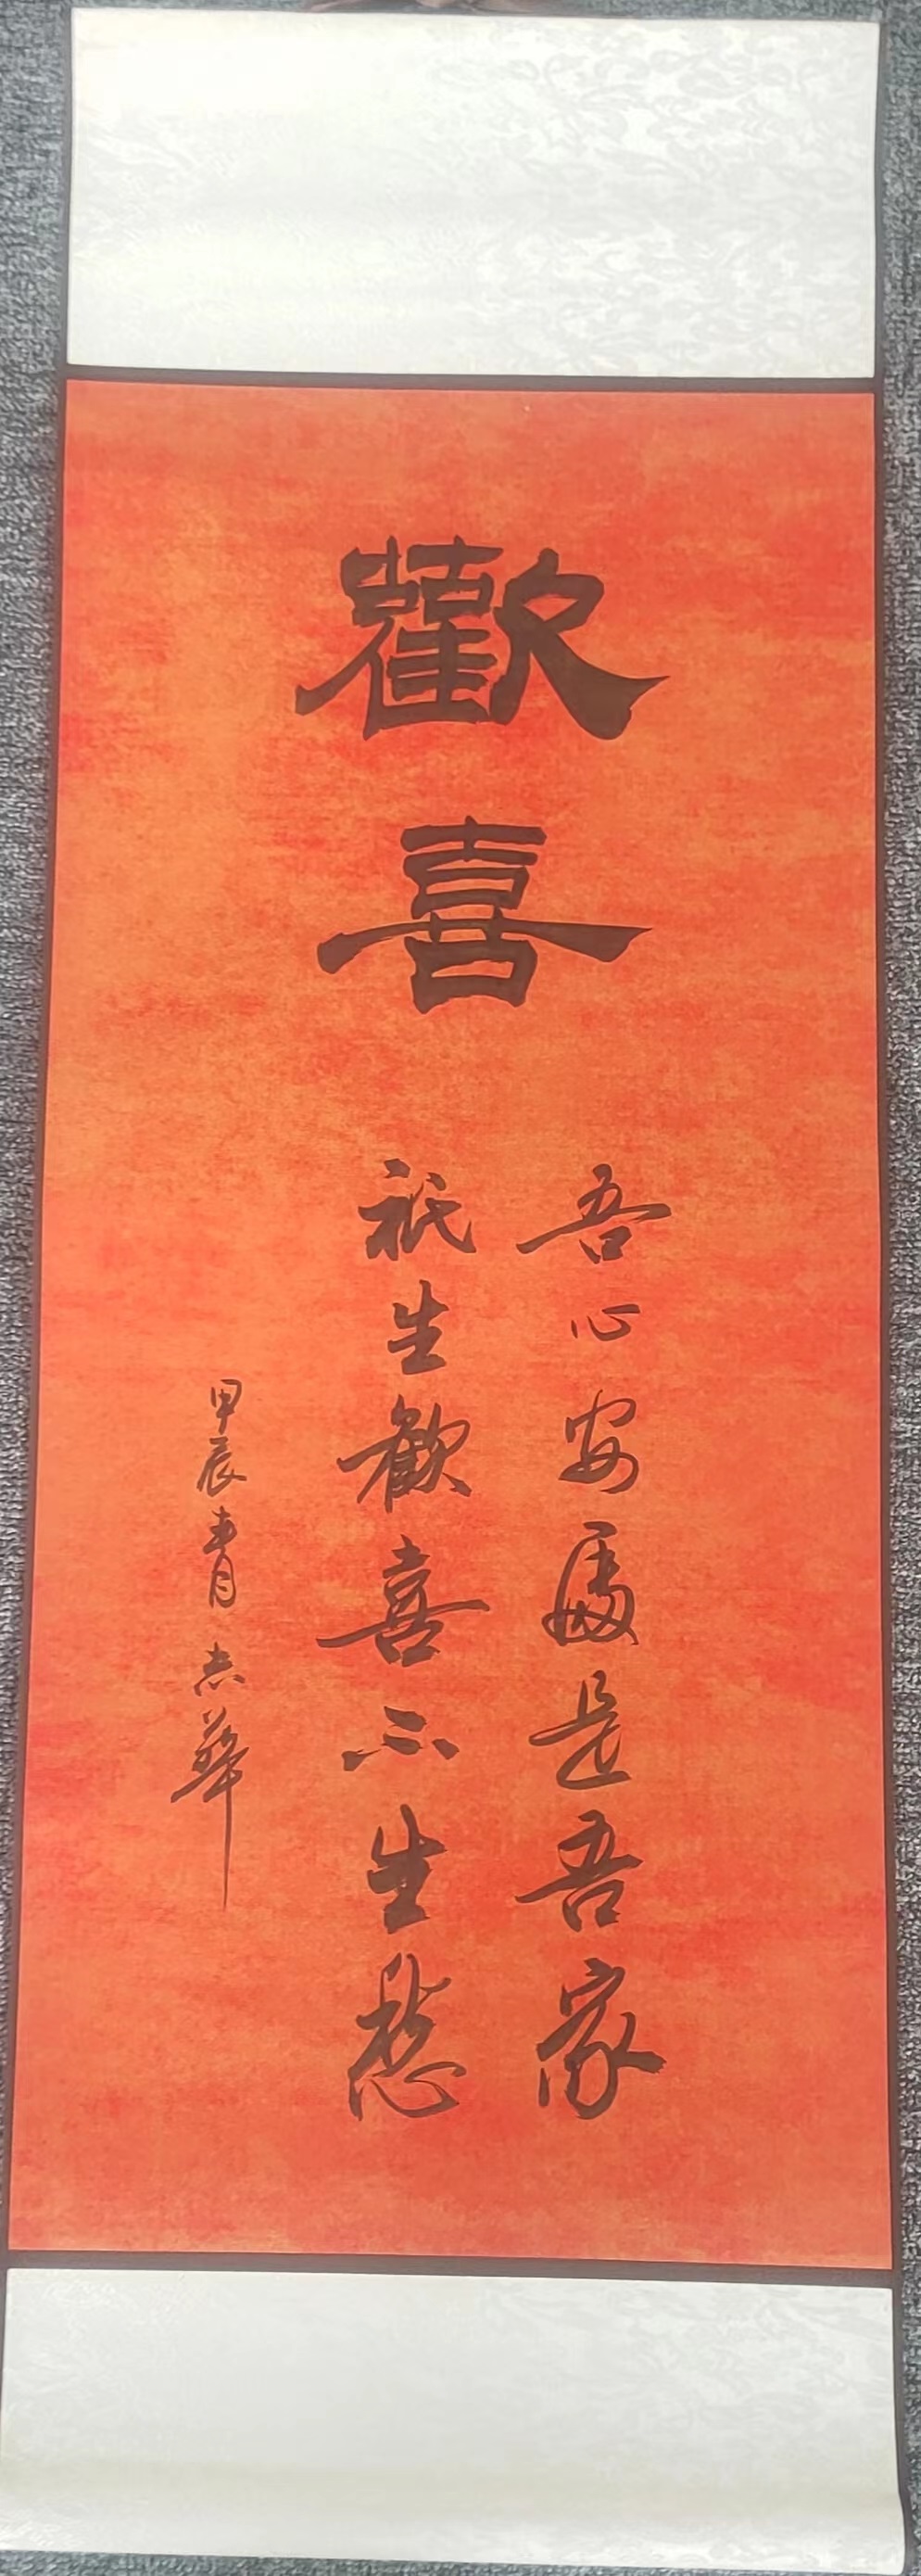 歡喜
吾心安處是吾家
祇生歡喜不生愁
甲辰春月 志華